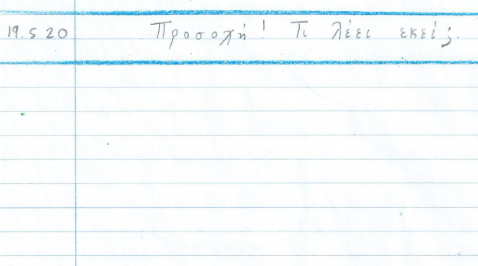 19.5 20 Προσοχή! Τι λέει εκεί;